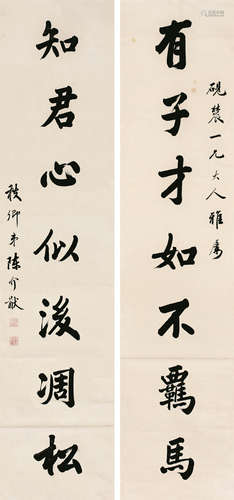 有子才如不羈馬
硯農一兄大人雅屬
知君心似後凋松
秩卿弟陳介猷